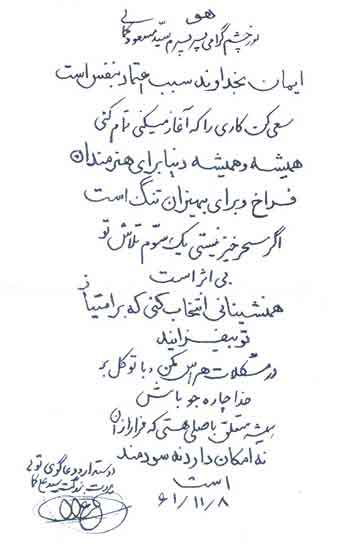 هو
نور چشم گرامی پسر پسرم سید مسعود
ایمان بخداوند سبب اعتماد بنفس است
سعی کن کاری را که آغاز میکنی تمام کنی
همیشه و همیشه دنیا برای هنرمندان
فراخ و برای بیهنران تنگ است
اگر سحر خیز نیستی یک سوم تلاش تو
بی اثر است
همنشینانی انتخاب کنی که بر امتیاز
تو بیفزایند
در مشکلات هراس مکن و با توکل بر
خدا چاره جو باش
همیشه متعلق باصلی هستی که فرار از آن
نه امکان دارد نه سودمند
است
دوستدار و دعاگوی تو
پدرت بزرگت سید علی
۶۱/۱۱/۸